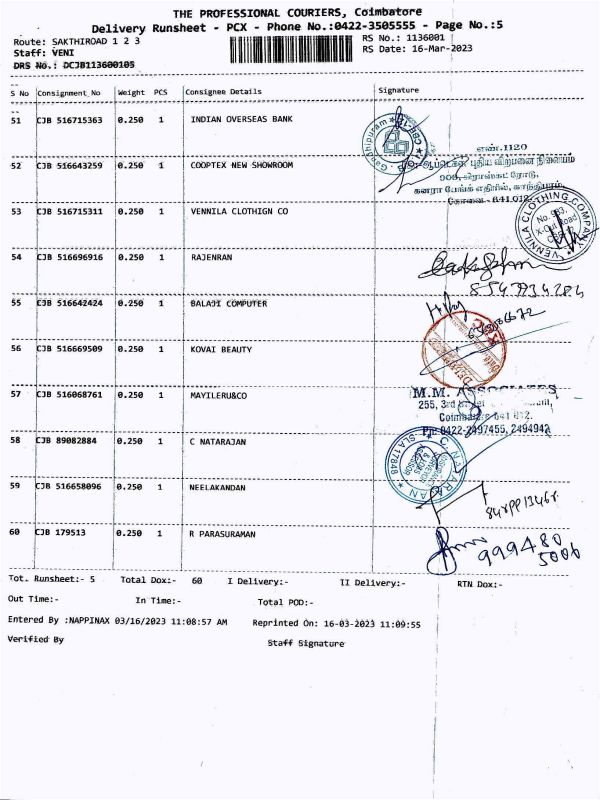 THE PROFESSIONAL COURIERS, Coimbatore
Delivery Runsheet - PCX - Phone No.:0422-3505555 - Page No.:5
Route: SAKTHIROAD 1 2 3 RS No.: 1136001
Staff: VENI RS Date: 16-Mar-2023
DRS No.: DCJB113600105
S No Consignment_No Weight PCS Consignee Details Signature
51 CJB 516715363 0.250 1 INDIAN OVERSEAS BANK
Gandhipuram
எண்.1120
52 CJB 516643259 0.250 1 COOPTEX NEW SHOWROOM
கோ-ஆப்டெக்ஸ் புதிய விற்பனை நிலையம்
கனரா பேங்க் எதிரில், காந்திபுரம்,
கோவை - 641 012.
53 CJB 516715311 0.250 1 VENNILA CLOTHIGN CO
VENNILA CLOTHING COMPANY
54 CJB 516696916 0.250 1 RAJENRAN
55 CJB 516642424 0.250 1 BALAJI COMPUTER
56 CJB 516669509 0.250 1 KOVAI BEAUTY
57 CJB 516068761 0.250 1 MAYILERU&CO
M.M. ASSOCIATES
255, 3rd
Coimbatore 641 012.
Ph: 0422-2497455, 2494942
58 CJB 89082884 0.250 1 C NATARAJAN
C. NATARAJAN
SLA 17848
59 CJB 516658096 0.250 1 NEELAKANDAN
60 CJB 179513 0.250 1 R PARASURAMAN
999480
5006
Tot. Runsheet:- 5 Total Dox:- 60 I Delivery:- II Delivery:- RTN Dox:-
Out Time:- In Time:- Total POD:-
Entered By :NAPPINAX 03/16/2023 11:08:57 AM Reprinted On: 16-03-2023 11:09:55
Verified By Staff Signature